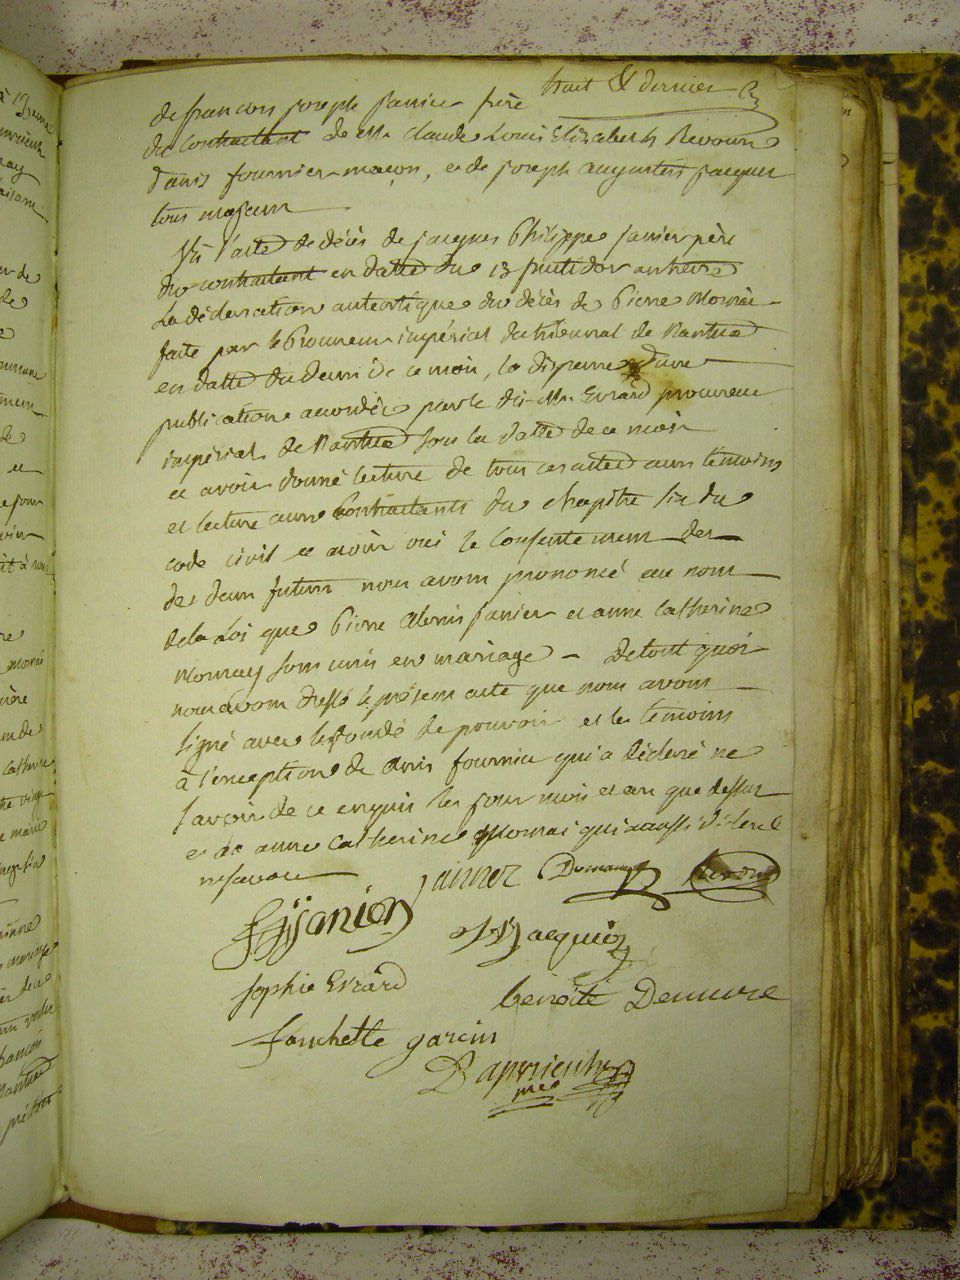 huit & dernier
de francois joseph janier frère
du contraitant de Mr. claude Louis Elizabeth Revour
danis fournier maçon, et de joseph augustin jacquier
tous majeurs
Vû l'acte de décès de jacques Philippe janier père
du contraitant en datte du 13 fructidor an treize
La déclaration autentique du décès de Pierre Mornai
faite par le Procureur impérial du tribunal de Nantua
en datte du deux de ce mois, la dispense d'une
publication accordée par le dit Mr. Evrard procureur
impérial de Nantua sous la datte de ce mois
et avoir donné lecture de tous ces actes aux témoins
et lecture aux Contraitants du chapitre six du
code civil et avoir oui le Consentement des
des deux futurs nous avons prononcé au nom
de la Loi que Pierre Alexis janier et anne Catherine
Mornay sont unis en mariage — De tout quoi
nous avons dressé le présent acte que nous avons
signé avec le fondé de pouvoir et les témoins
à l'exception de danis fournier qui a déclaré ne
savoir de ce enquis les jour mois et an que dessus
et de anne Catherine Mornai qui a aussi déclaré
ne savoir
janier Revour
FJ janier jacquier
Sophie Evrard
benoite Demure
fanchette garcin